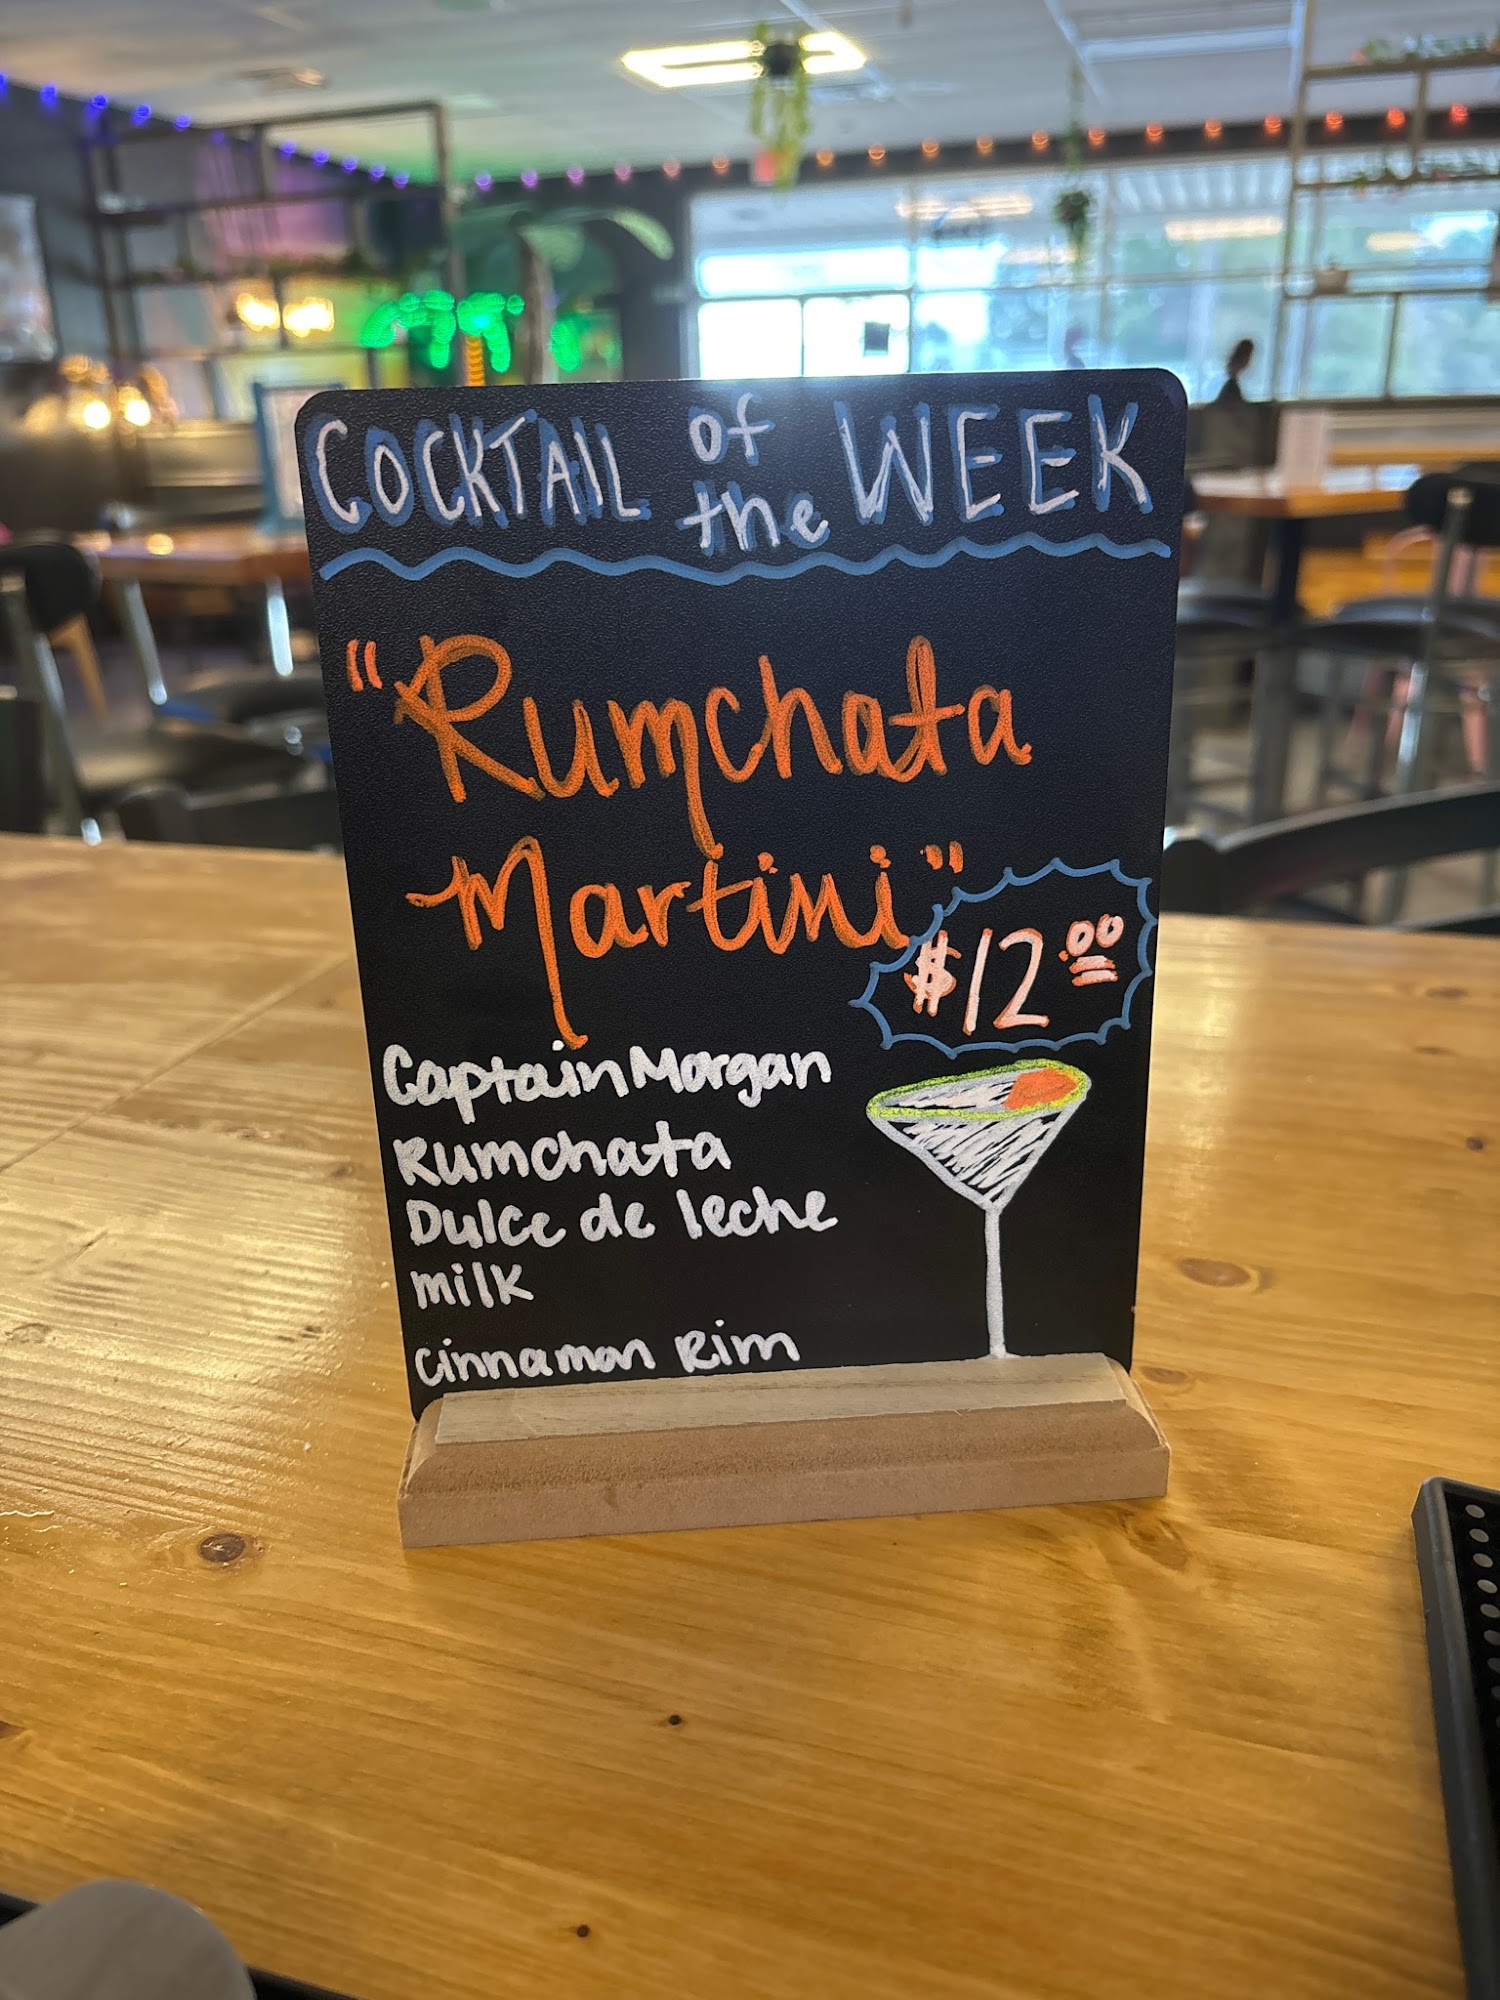 COCKTAIL of the WEEK
"Rumchata
Martini"
$12.00
Captain Morgan
Rumchata
Dulce de leche
milk
cinnamon Rim